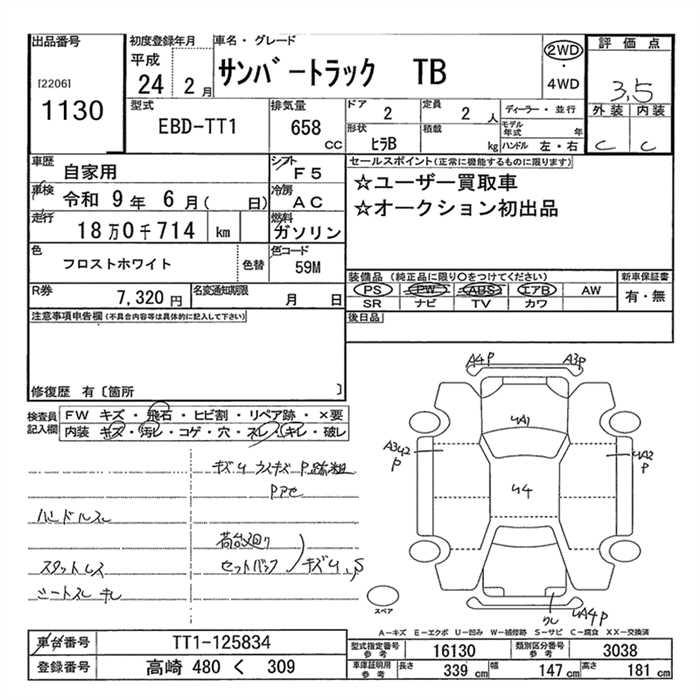 出品番号
[2206]
1130
初度登録年月
平成
24 2月
車名・グレード
サンバートラック TB
2WD
・
4WD
評価点
3.5
外装 内装
C C
型式
EBD-TT1
排気量
658
cc
ドア
2
定員
2 人
ディーラー・並行
形状
ヒラB
積載
kg
モデル年式
年
ハンドル 左・右
車歴
自家用
シフト
F5
車検
令和 9年 6月( 日)
冷房
AC
走行
18万0千714 km
燃料
ガソリン
色
フロストホワイト
色替
色コード
59M
R券
7,320 円
名変通知期限
月 日
セールスポイント(正常に機能するものに限ります)
☆ユーザー買取車
☆オークション初出品
装備品 (純正品に限り○をつけてください)
新車保証書
PS PW ABS エアB AW
有・無
SR ナビ TV カワ
後日品
注意事項申告欄(不具合内容等は具体的に記入して下さい)
修復歴 有〔箇所 〕
検査員
記入欄
FW キズ・飛石・ヒビ割・リペア跡・×要
内装 キズ・汚レ・コゲ・穴・スレ・キレ・破レ
キズU ウスキズ P跡粗
Pアセ
ハンドルスレ
荷台廻り
セットバック
キズU,S
シートスレ キレ
A4P A3P
UA1
A3U2
P
UA2
P
U4
UA4P
スペア
A－キズ E－エクボ U－凹み W－補修跡 S－サビ C－腐食 XX－交換済
車台番号
TT1-125834
登録番号
高崎 480 く 309
型式指定番号
参考
16130
類別区分番号
参考
3038
車庫証明用
参考
長さ
339 cm
幅
147 cm
高さ
181 cm